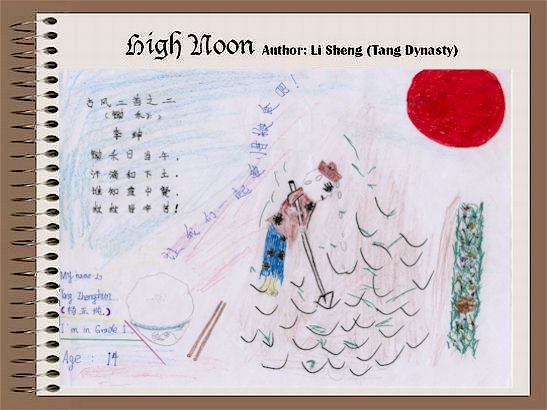 High Noon Author: Li Sheng (Tang Dynasty)
古风二首之二
(锄禾)
李绅
锄禾日当午,
汗滴和下土.
谁知盘中餐,
粒粒皆辛苦!
让我们一起
My name is
Yang
I'm in Grade 1
Age : 14